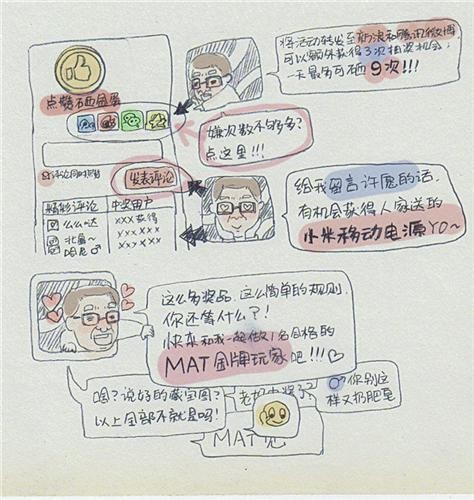 将活动转发至新浪和腾讯微博
可以额外获得3次抽奖机会,
一天最多可砸9次!!!
点赞砸金蛋
嫌次数不够多?
点这里!!!
发表评论
精彩评论 中奖用户
么么哒 xxx获得
北鼻~ yxxxxx
哈尼 xxyxx
给我留言许愿的话,
有机会获得人家送的
小米移动电源YO~
这么多奖品,这么简单的规则,
你还等什么?!
快来和我一起做1名合格的
MAT金牌玩家吧!!!
啥?说好的藏宝图?
以上全部不就是吗!
中奖了?
你别这
样又扔肥皂
MAT见